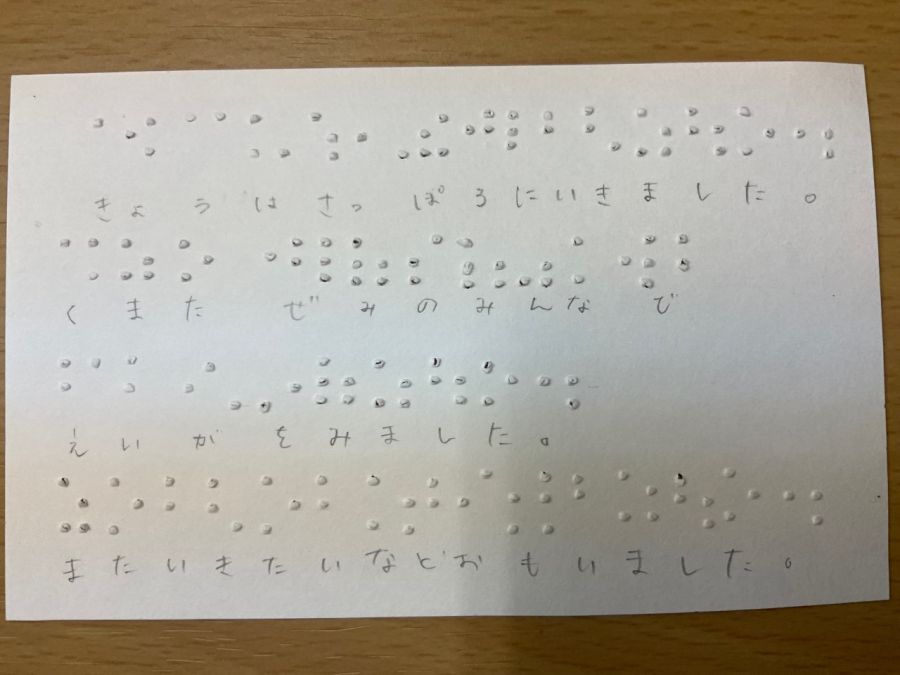 きょうはさっぽろにいきました。
くまたぜみのみんなで
えいがをみました。
またいきたいなどおもいました。